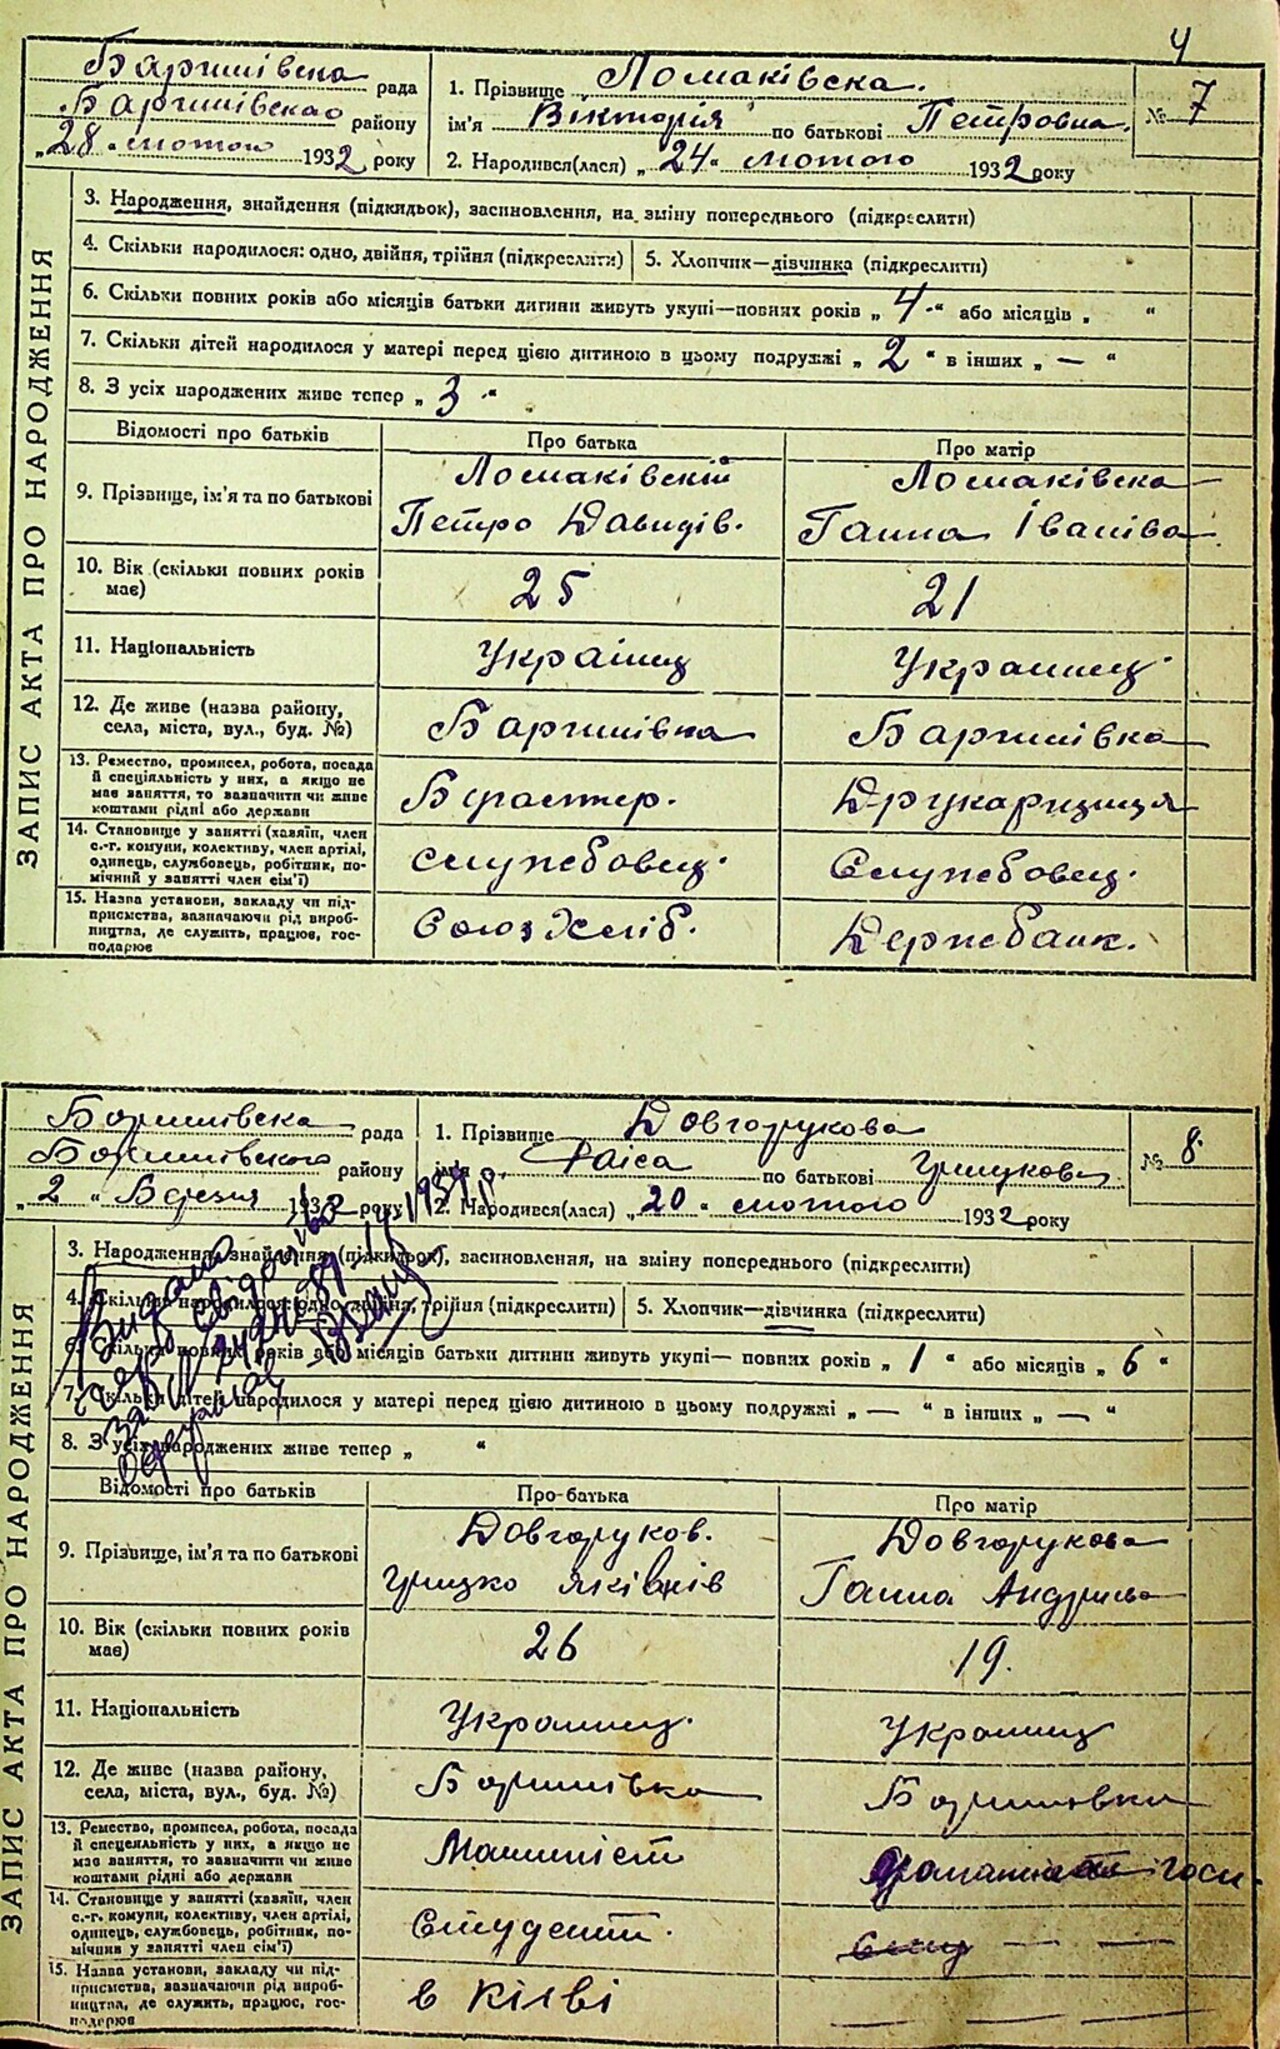 4
Баришівська рада
Баришівського району
„28“ лютого 1932 року
1. Прізвище Ломаківська.
ім'я Вікторія по батькові Петровна.
2. Народився(лася) „24“ лютого 1932 року
№ 7
ЗАПИС АКТА ПРО НАРОДЖЕННЯ
3. Народження, знайдення (підкидьок), засиновлення, на зміну попереднього (підкреслити)
4. Скільки народилося: одно, двійня, трійня (підкреслити)
5. Хлопчик—дівчинка (підкреслити)
6. Скільки повних років або місяців батьки дитини живуть укупі—повних років „4“ або місяців „ “
7. Скільки дітей народилося у матері перед цією дитиною в цьому подружжі „2“ в інших „—“
8. З усіх народжених живе тепер „3“
Відомості про батьків
Про батька
Про матір
9. Прізвище, ім'я та по батькові
Ломаківський
Петро Давидів.
Ломаківська
Ганна Іванівна
10. Вік (скільки повних років
має)
25
21
11. Національність
Українец
Украинец
12. Де живе (назва району,
села, міста, вул., буд. №)
Баришівка
Баришівка
13. Ремество, промисел, робота, посада
й спеціяльність у них, а якщо не
має заняття, то зазначити чи живе
коштами рідні або держави
Бугалтер.
Друкарщиця
14. Становище у занятті (хазяїн, член
с.-г. комуни, колективу, член артілі,
одинець, службовець, робітник, по-
мічний у занятті член сім'ї)
Службовец.
Службовец.
15. Назва установи, закладу чи під-
приємства, зазначаючи рід вироб-
ництва, де служить, працює, гос-
подарює
Союз Хліб.
Держбанк.
Баришівська рада
Баришівського району
„2“ Березня 1932 року
1. Прізвище Довгорукова
ім'я Раіса по батькові Грицукова
2. Народився(лася) „20“ лютого 1932 року
№ 8.
ЗАПИС АКТА ПРО НАРОДЖЕННЯ
3. Народження, знайдення (підкидьок), засиновлення, на зміну попереднього (підкреслити)
4. Скільки народилося: одно, двійня, трійня (підкреслити)
5. Хлопчик—дівчинка (підкреслити)
6. Скільки повних років або місяців батьки дитини живуть укупі— повних років „1“ або місяців „6“
7. Скільки дітей народилося у матері перед цією дитиною в цьому подружжі „—“ в інших „—“
8. З усіх народжених живе тепер „ “
Видано
свідоцтво
за №
Відомості про батьків
Про батька
Про матір
9. Прізвище, ім'я та по батькові
Довгоруков.
Грицко Яківлів
Довгорукова
Ганна Андріївна
10. Вік (скільки повних років
має)
26
19.
11. Національність
Украинец.
Украинец
12. Де живе (назва району,
села, міста, вул., буд. №)
Баришівка
Баришівка
13. Ремество, промисел, робота, посада
й спецеяльність у них, а якщо не
має заняття, то зазначити чи живе
коштами рідні або держави
Машиніст
госп.
14. Становище у занятті (хазяїн, член
с.-г. комуни, колективу, член артілі,
одинець, службовець, робітник, по-
мічник у занятті член сім'ї)
Студент.
— —
15. Назва установи, закладу чи під-
приємства, зазначаючи рід вироб-
ництва, де служить, працює, гос-
подарює
в Кієві
— — —